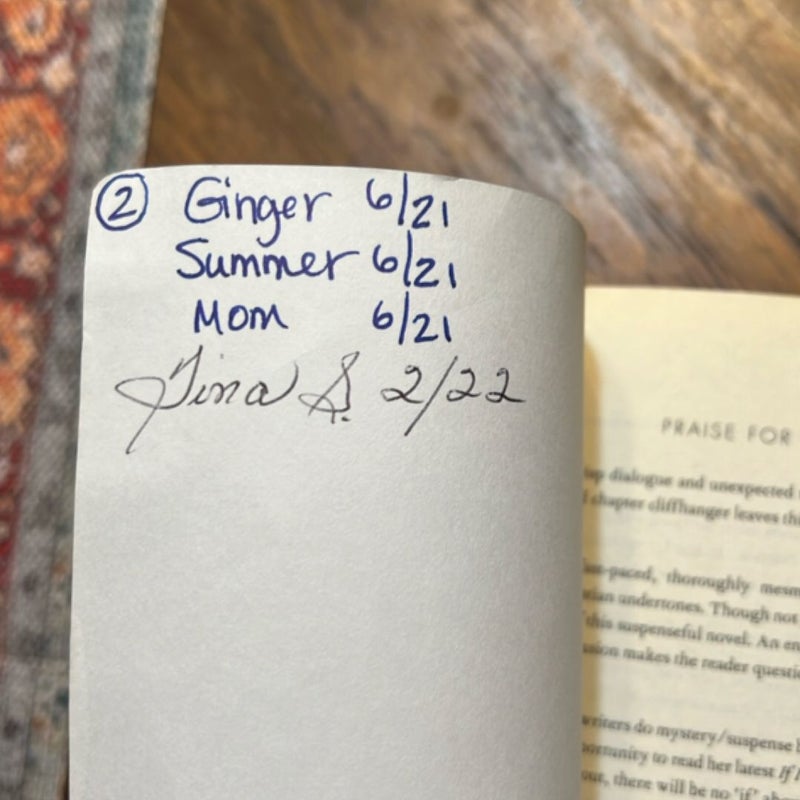 ② Ginger 6/21
Summer 6/21
Mom 6/21
Tina S. 2/22
PRAISE FOR
dialogue and unexpected
chapter cliffhanger leaves
-paced, thoroughly
undertones. Though not
this suspenseful novel. An
makes the reader
writers do mystery/suspense
to read her latest If
out, there will be no 'if'